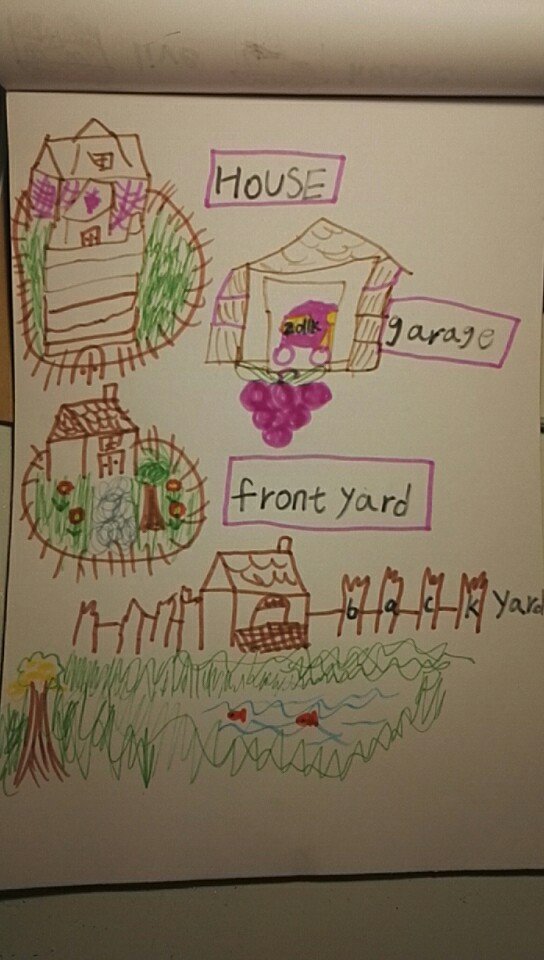 HOUSE
garage
front yard
back Yard